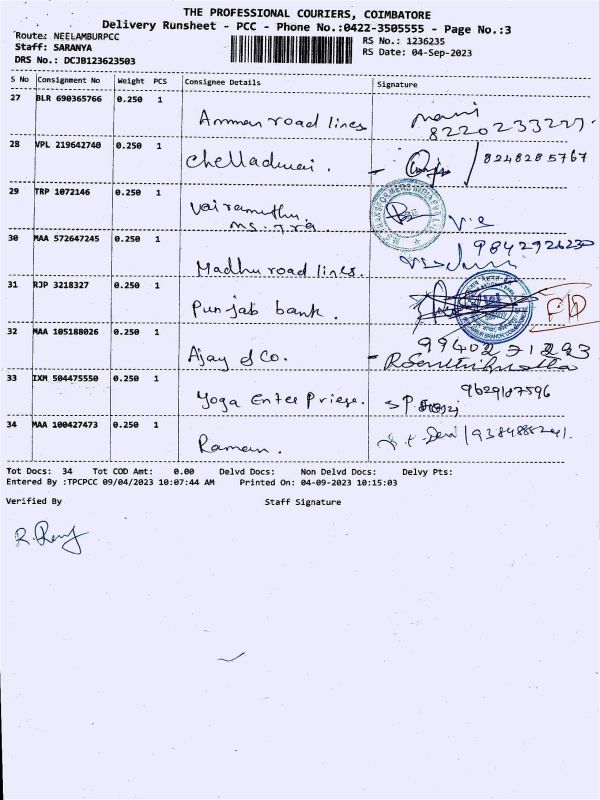 THE PROFESSIONAL COURIERS, COIMBATORE
Delivery Runsheet - PCC - Phone No.:0422-3505555 - Page No.:3
Route: NEELAMBURPCC
RS No.: 1236235
Staff: SARANYA
RS Date: 04-Sep-2023
DRS No.: DCJB123623503
S No Consignment No Weight PCS Consignee Details Signature
27 BLR 690365766 0.250 1 Amman road lines mani
8220233227
28 VPL 219642740 0.250 1 Chelladurai. 8248285767
29 TRP 1072146 0.250 1 Vairamuthu
ms. Jra
30 MAA 572647245 0.250 1 Madhu road lines. 9842926230
31 RJP 3218327 0.250 1 Punjab bank.
32 MAA 105188026 0.250 1 Ajay & Co. 9940271293
33 IXM 504475550 0.250 1 Yoga Enter Priese. 9629187596
34 MAA 100427473 0.250 1 Raman.
Tot Docs: 34 Tot COD Amt: 0.00 Delvd Docs: Non Delvd Docs: Delvy Pts:
Entered By :TPCPCC 09/04/2023 10:07:44 AM Printed On: 04-09-2023 10:15:03
Verified By Staff Signature